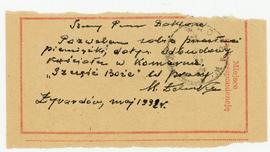 Szan. Panie Doktorze
Pozwalam sobie przesłać
pieniążki, dotyc. odbudowy
kościoła w Komarnie.
"Szczęść Boże" w pracy.
M.
Żyrardów, maj 1992 r.
Miejsce